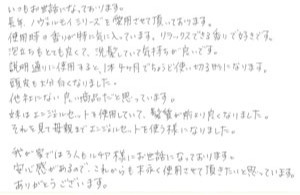 いつもお世話になっております。
長年、ノヴェルモイシリーズを愛用させて頂いております。
使用時の香りが特に気に入っています。リラックスできる香りで好きです。
泡立ちもとても良くて、洗髪していて気持ちが良いです。
説明通りに使用すると、1本4ヶ月でちょうど使い切る分になります。
頭皮も大分白くなりました。
他社にない良い商品だと思っています。
妹はエンジェルセットを使用していて、髪質が前より良くなりました。
それを見て母親までエンジェルセットを使う様になりました。
我が家では3人も 様にお世話になっております。
安心感があるので、これからも末永く使用させて頂きたいと思っています。
ありがとうございます。